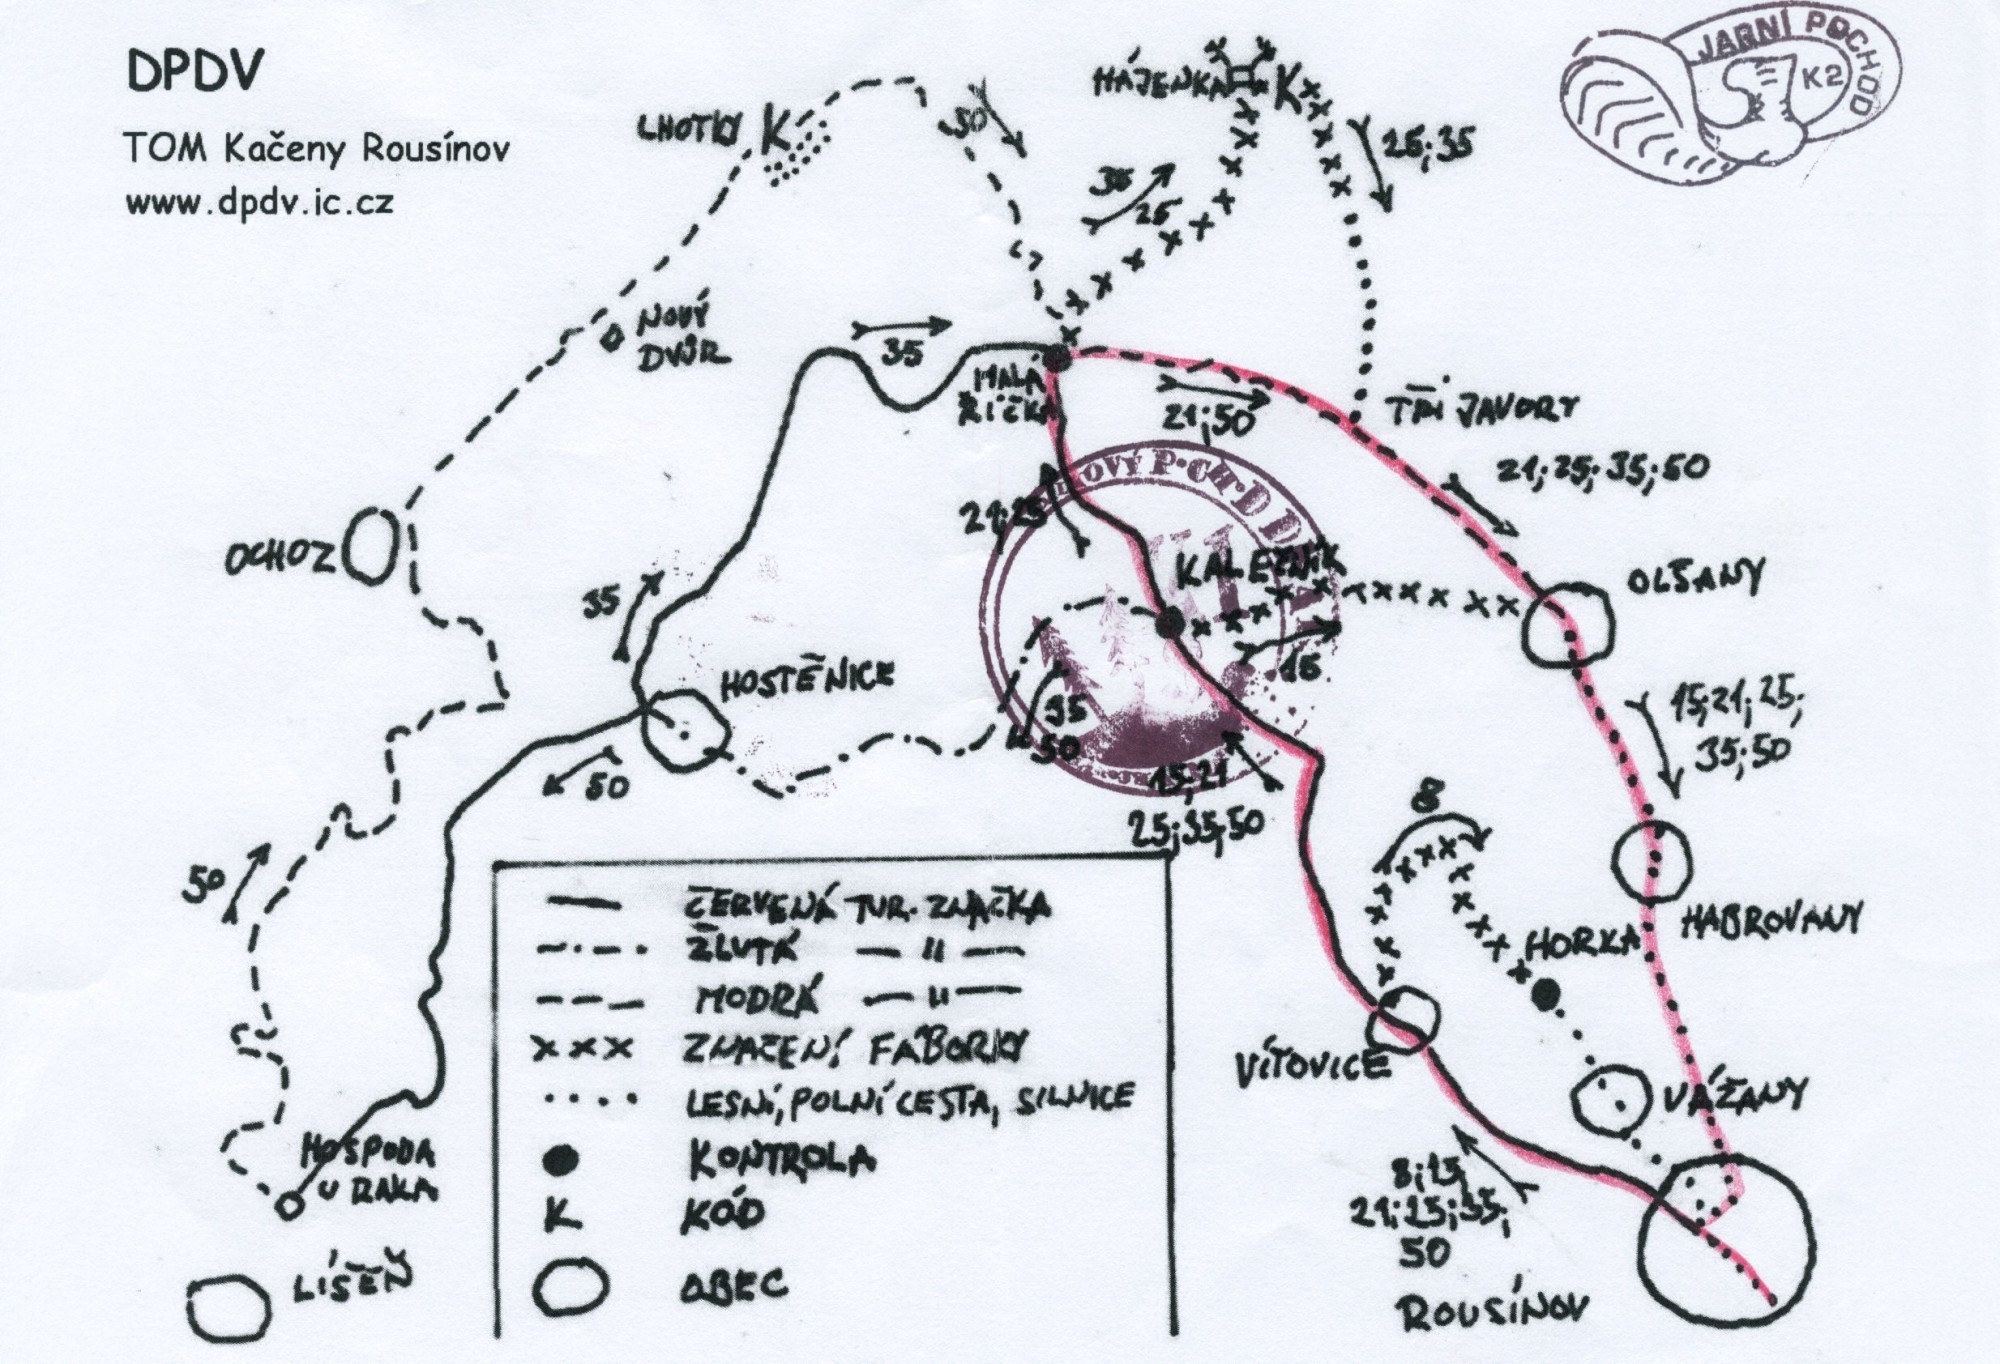 DPDV
TOM Kačeny Rousínov
www.dpdv.ic.cz
JARNÍ POCHOD
K2
HÁJENKA K
LHOTKY K
50
25;35
35
25
NOVÝ
DVŮR
35
MALÁ
ŘÍČKA
21;50
TŘI JAVORY
21;25;35;50
OCHOZ
21;25
KALEČNÍK
OLŠANY
35
HOSTĚNICE
15
35
50
15;21;25;
35;50
50
15;21
25;35;50
8
50
HABROVANY
HORKA
VÍTOVICE
VÁŽANY
ČERVENÁ TUR. ZNAČKA
ŽLUTÁ — " —
MODRÁ — " —
ZNAČENÍ FÁBORKY
LESNÍ, POLNÍ CESTA, SILNICE
KONTROLA
K KÓD
OBEC
HOSPODA
U RAKA
LÍŠEŇ
8;15;
21;25;35;
50
ROUSÍNOV